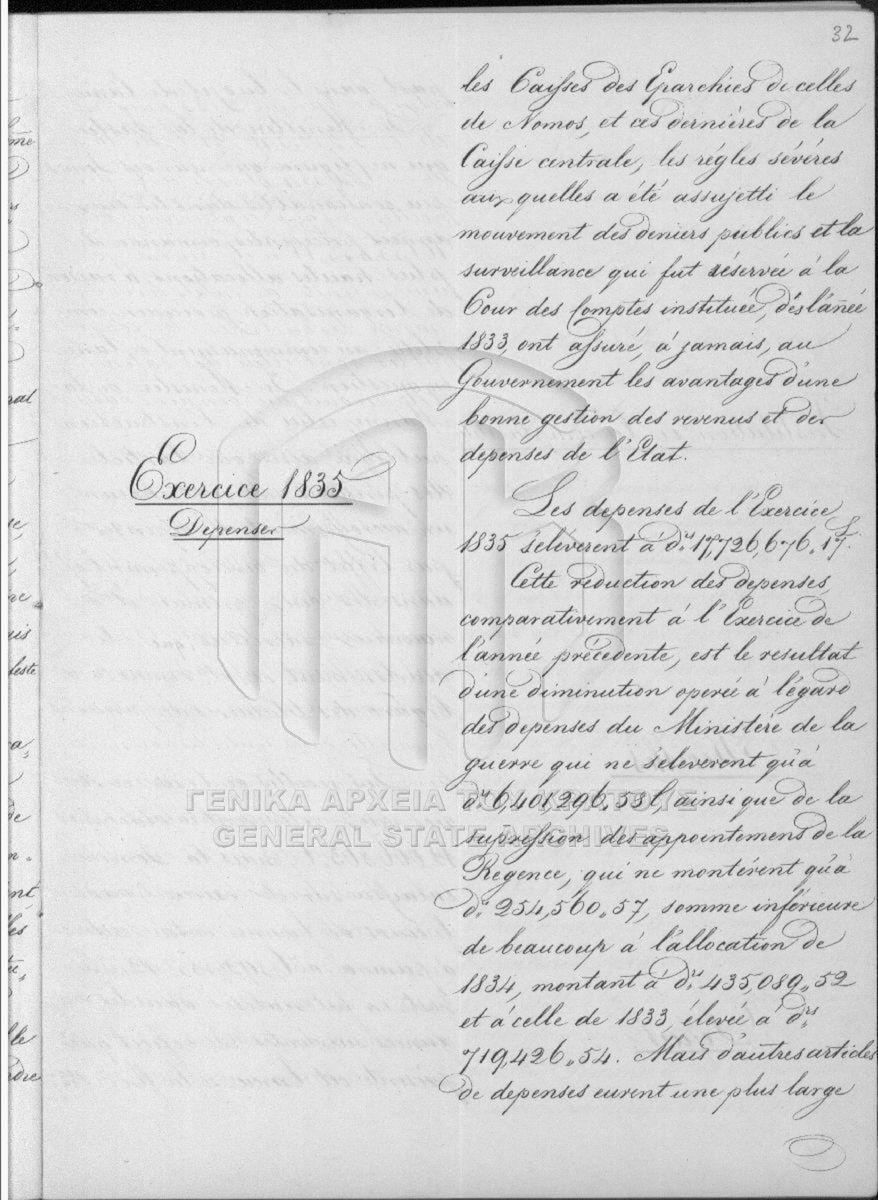 32
les Caisses des Eparchies de celles
de Nomos, et ces dernières de la
Caisse centrale, les régles sévéres
aux quelles a été assujetti le
mouvement des deniers publics et la
surveillance qui fut réservée à la
Cour des Comptes instituée, dès l'année
1833, ont assuré, à jamais, au
Gouvernement les avantages d'une
bonne gestion des revenus et des
depenses de l'Etat.
Exercice 1835
Depenses
Les depenses de l'Exercice
1835 s'élèverent à drs 17,726,676.17.
Cette réduction des depenses,
comparativement à l'Exercice de
l'année précedente, est le resultat
d'une diminution operée à l'égard
des depenses du Ministére de la
guerre qui ne s'eleverent qu'à
drs 6,401,296.53 l, ainsi que de la
supression des appointemens de la
Regence, qui ne montérent qu'à
drs 254,560.57, somme inférieure
de beaucoup à l'allocation de
1834, montant à drs 435,089.52
et à celle de 1833, élevée à drs
719,426.54. Mais d'autres articles
de depenses eurent une plus large
ΓΕΝΙΚΑ ΑΡΧΕΙΑ ΤΟΥ ΚΡΑΤΟΥΣ
GENERAL STATE ARCHIVES